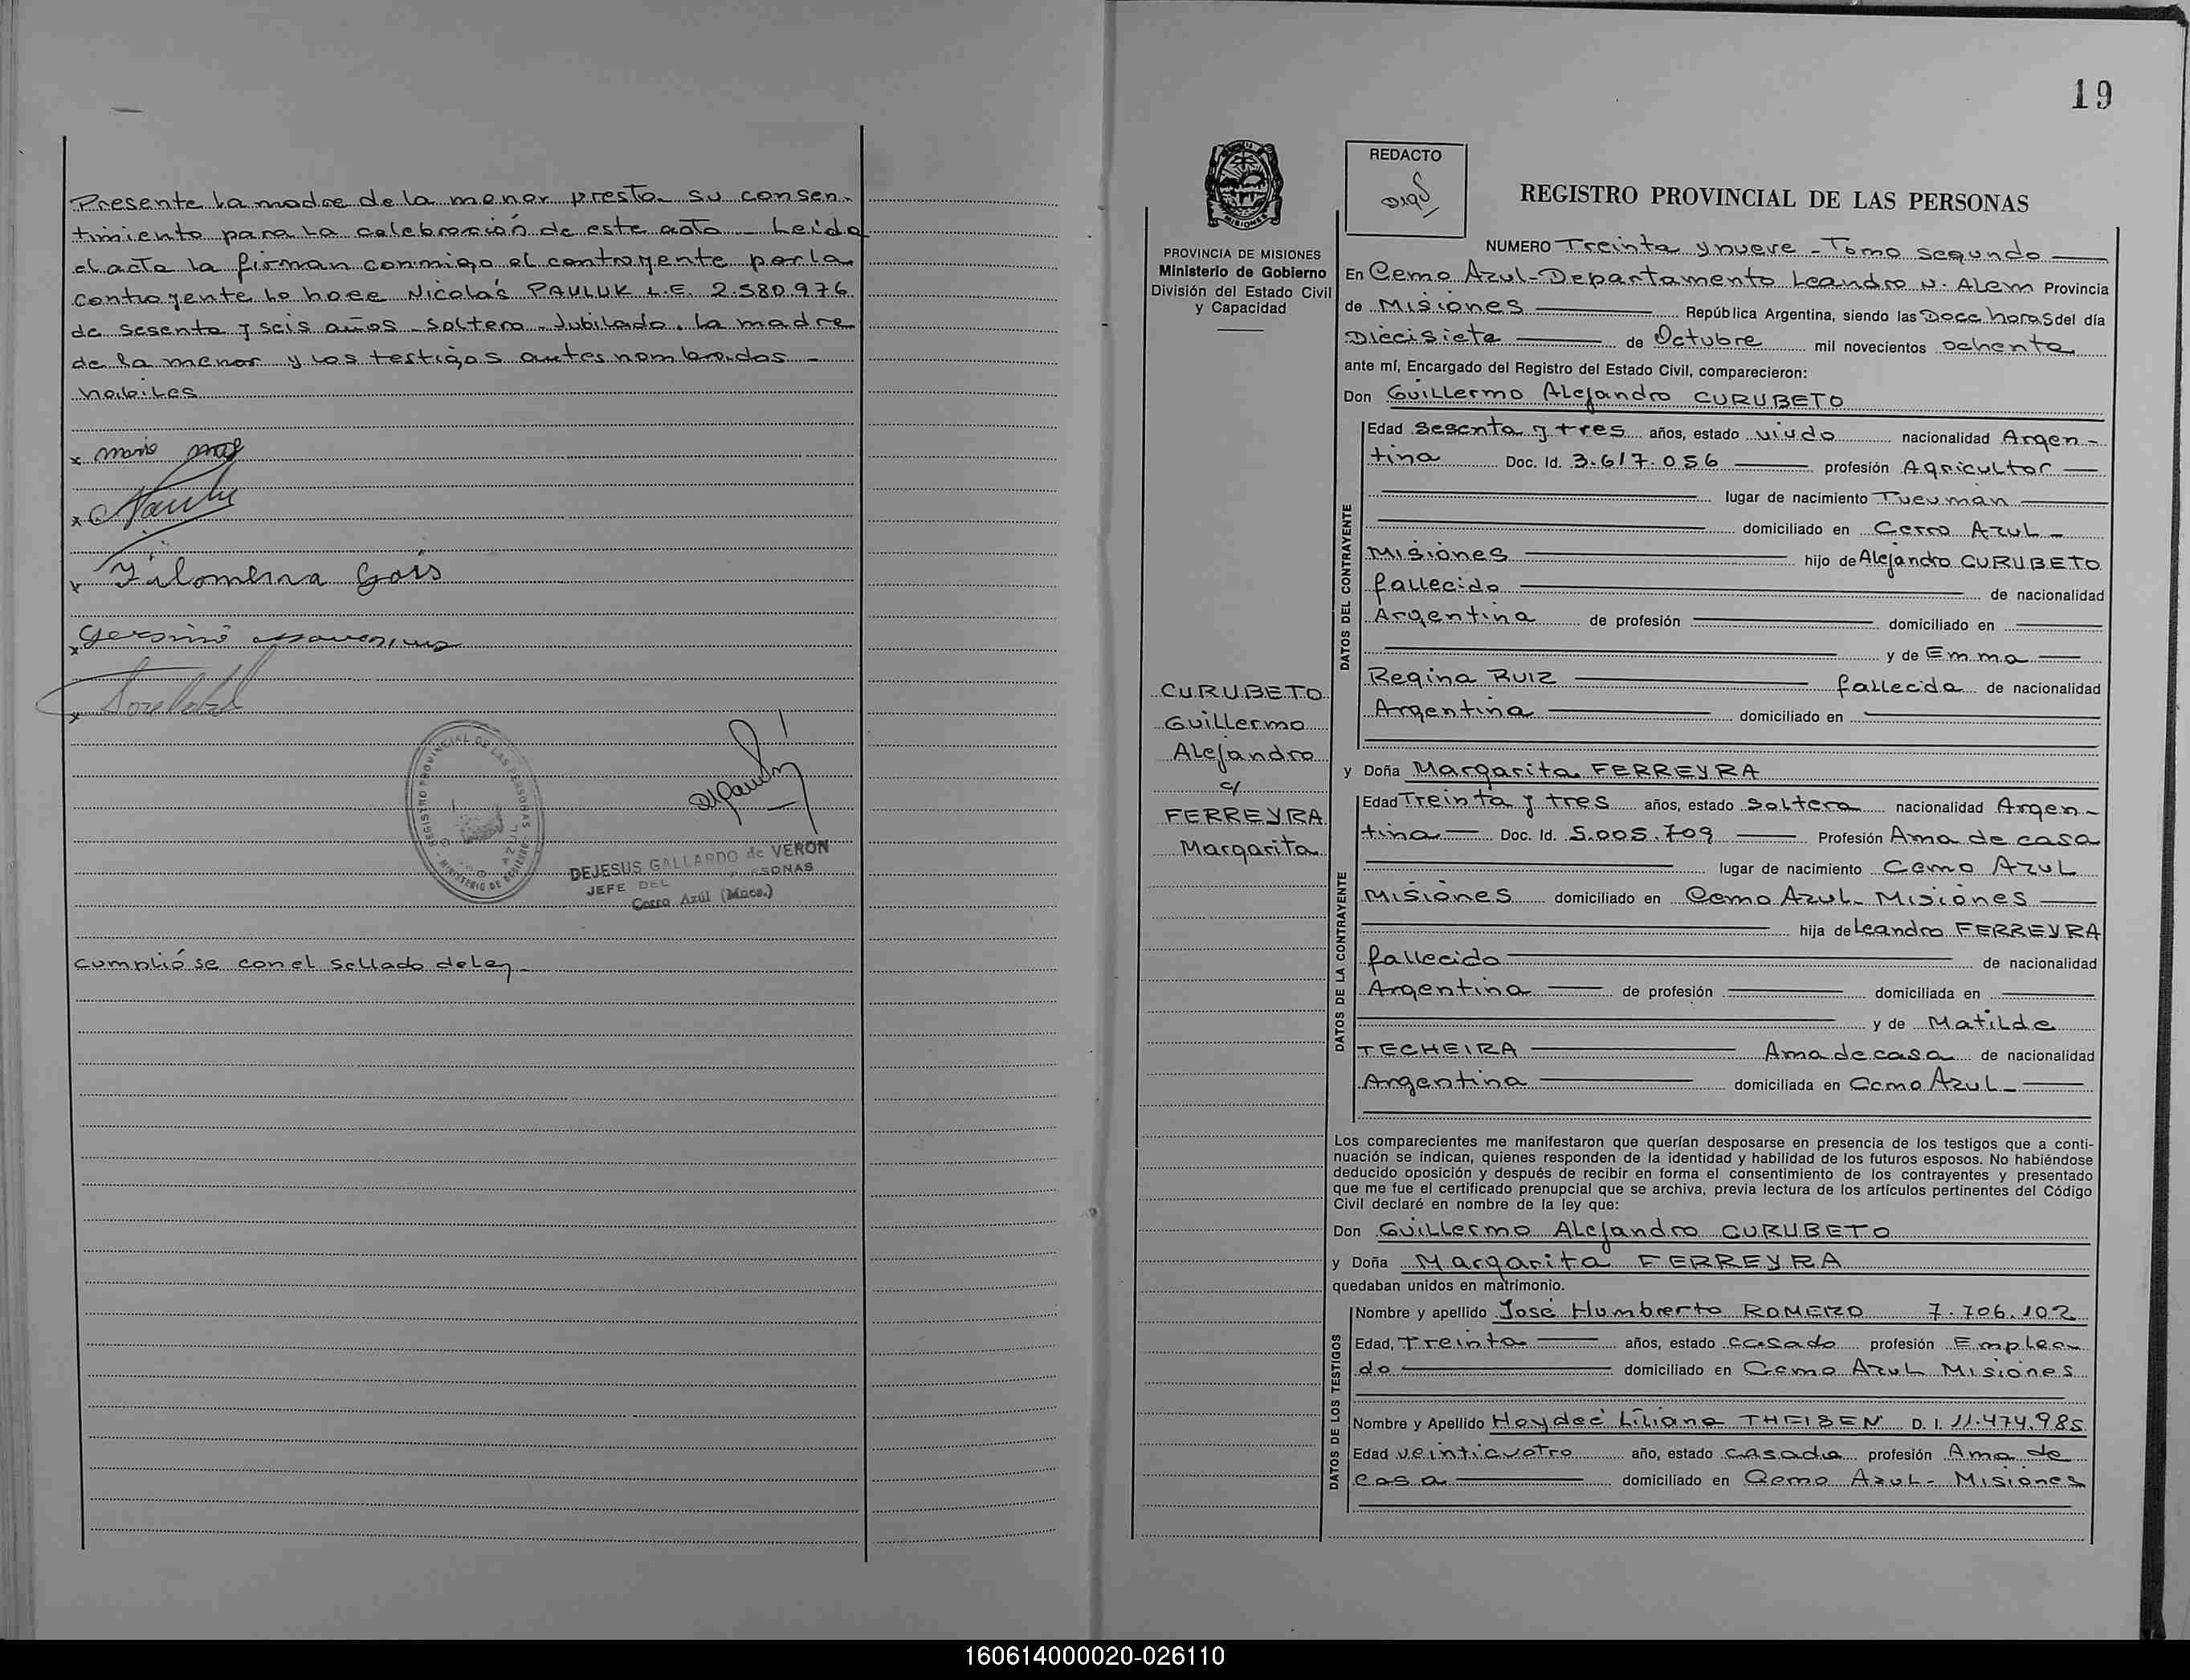 Presente la madre de la menor presta su consen-
timiento para la celebración de este acto - Leida
el acta la firman conmigo el contrayente por la
contrayente lo hace Nicolás PAULUK L.E. 2.580.976
de sesenta y seis años - soltero - Jubilado. la madre
de la menor y los testigos antes nombrados -
habiles
x Mario
x
x Filomena Gois
x
x
REGISTRO PROVINCIAL DE LAS PERSONAS
MINISTERIO DE
DEJESUS GALLARDO de VERON
JEFE DEL
Cerro Azúl (Mnes.)
Cumplióse con el sellado de Ley -
19
PROVINCIA DE MISIONES
Ministerio de Gobierno
División del Estado Civil
y Capacidad
CURUBETO
Guillermo
Alejandro
c/
FERREYRA
Margarita
REDACTO
REGISTRO PROVINCIAL DE LAS PERSONAS
NUMERO Treinta y nueve - Tomo segundo
En Cerro Azul - Departamento Leandro N. Alem Provincia
de Misiones República Argentina, siendo las Doce horas del día
Diecisiete de Octubre mil novecientos ochenta
ante mí, Encargado del Registro del Estado Civil, comparecieron:
Don Guillermo Alejandro CURUBETO
DATOS DEL CONTRAYENTE
Edad Sesenta y tres años, estado viudo nacionalidad Argen-
tina Doc. Id. 3.617.056 profesión Agricultor
lugar de nacimiento Tucumán
domiciliado en Cerro Azul -
Misiones hijo de Alejandro CURUBETO
fallecido de nacionalidad
Argentina de profesión domiciliado en
y de Emma
Regina RUIZ fallecida de nacionalidad
Argentina domiciliado en
y Doña Margarita FERREYRA
DATOS DE LA CONTRAYENTE
Edad Treinta y tres años, estado soltera nacionalidad Argen-
tina Doc. Id. 5.005.709 Profesión Ama de casa
lugar de nacimiento Cerro Azul
Misiones domiciliado en Cerro Azul - Misiones
hija de Leandro FERREYRA
fallecido de nacionalidad
Argentina de profesión domiciliada en
y de Matilde
TECHEIRA Ama de casa de nacionalidad
Argentina domiciliada en Cerro Azul -
Los comparecientes me manifestaron que querían desposarse en presencia de los testigos que a conti-
nuación se indican, quienes responden de la identidad y habilidad de los futuros esposos. No habiéndose
deducido oposición y después de recibir en forma el consentimiento de los contrayentes y presentado
que me fue el certificado prenupcial que se archiva, previa lectura de los artículos pertinentes del Código
Civil declaré en nombre de la ley que:
Don Guillermo Alejandro CURUBETO
y Doña Margarita FERREYRA
quedaban unidos en matrimonio.
DATOS DE LOS TESTIGOS
Nombre y apellido José Humberto ROMERO 7.706.102
Edad, Treinta años, estado casado profesión Emplea-
do domiciliado en Cerro Azul Misiones
Nombre y Apellido Haydeé Liliana THEISEN D. I. 11.474.985
Edad veinticuatro año, estado casada profesión Ama de
casa domiciliado en Cerro Azul - Misiones
160614000020-026110